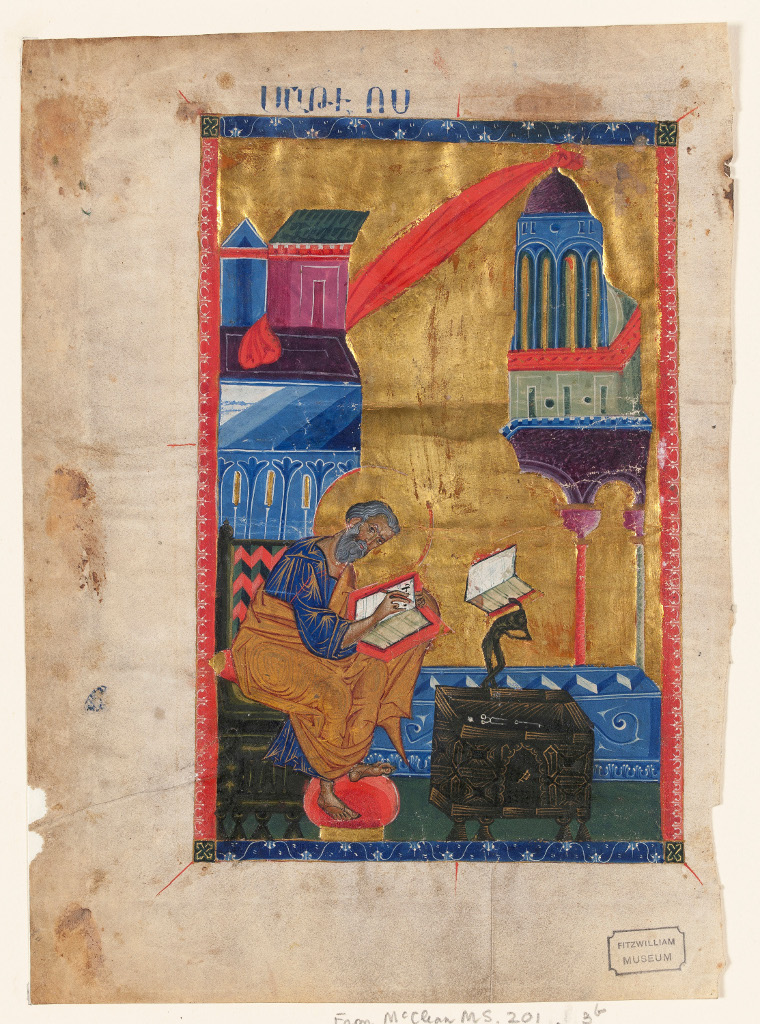 ՄԱՏԹԷ ՈՍ
FITZWILLIAM
MUSEUM
From McClean M.S. 201